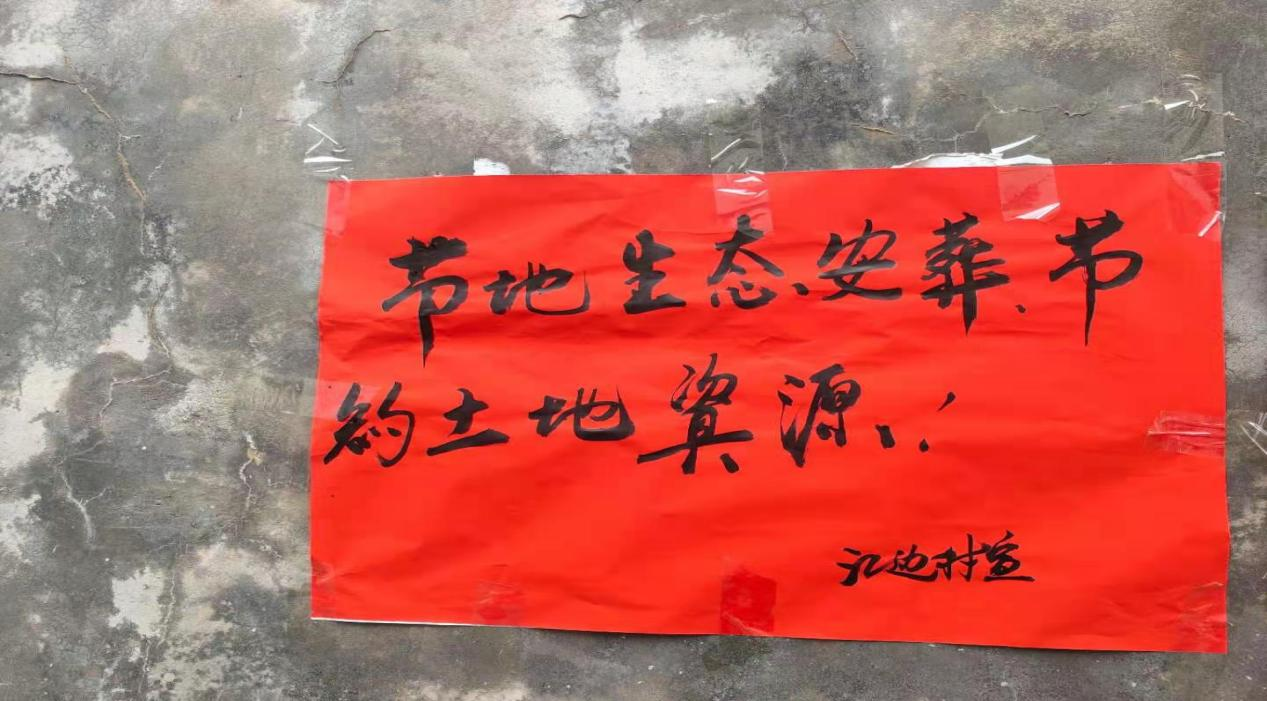 节地生态安葬、节
约土地资源！
江边村宣